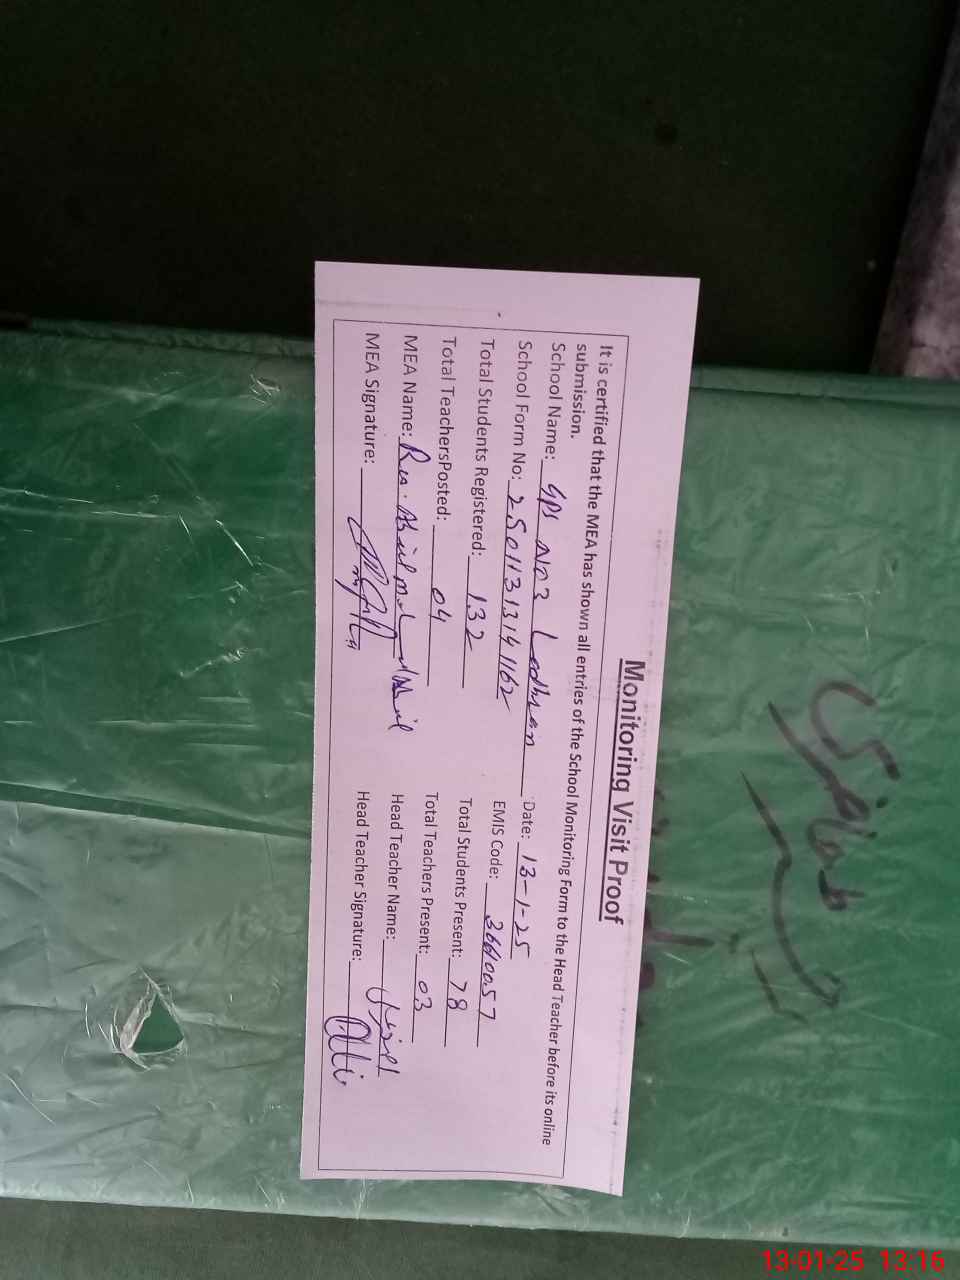 Monitoring Visit Proof
It is certified that the MEA has shown all entries of the School Monitoring Form to the Head Teacher before its online
submission.
School Name: GPS NO3 Lodhran Date: 13-1-25
School Form No: 2501131314 1162 EMIS Code: 36610057
Total Students Registered: 132 Total Students Present: 78
Total TeachersPosted: 04 Total Teachers Present: 03
MEA Name: Head Teacher Name:
MEA Signature: Head Teacher Signature:
13-01-25 13:16